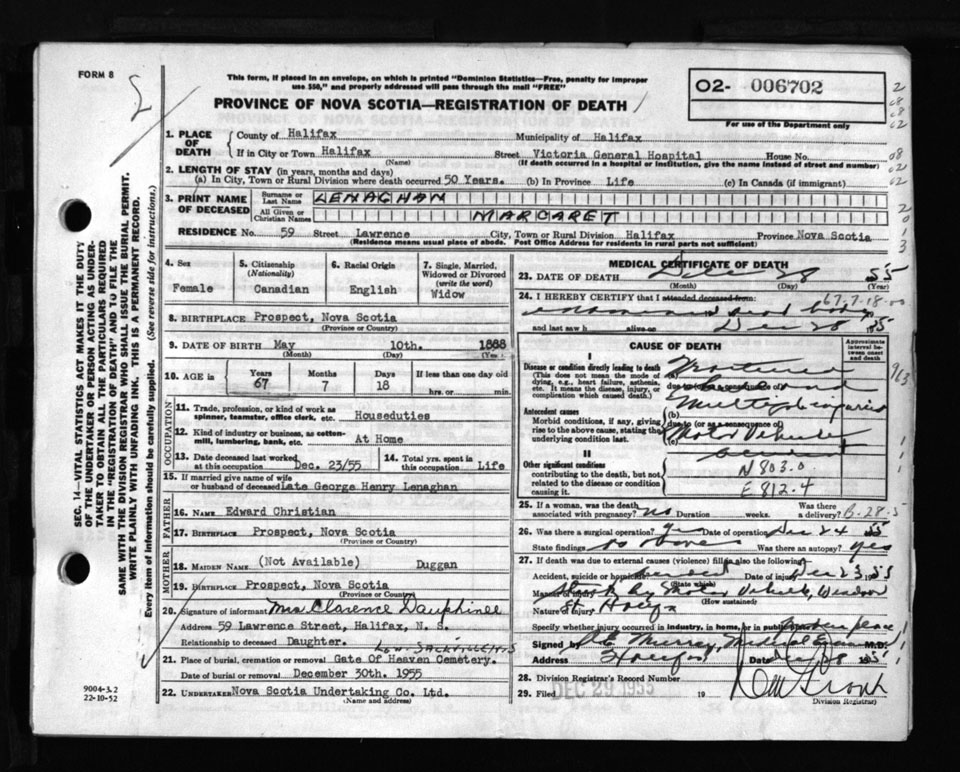 FORM 8
This form, if placed in an envelope, on which is printed "Dominion Statistics—Free, penalty for improper
use $50," and properly addressed will pass through the mail "FREE"
PROVINCE OF NOVA SCOTIA—REGISTRATION OF DEATH
02- 006702
For use of the Department only
1. PLACE OF DEATH
County of Halifax Municipality of Halifax
If in City or Town Halifax Street Victoria General Hospital House No.
(Name) (If death occurred in a hospital or institution, give the name instead of street and number)
2. LENGTH OF STAY (in years, months and days)
(a) In City, Town or Rural Division where death occurred 50 Years. (b) In Province Life (c) In Canada (if immigrant)
3. PRINT NAME OF DECEASED
Surname or Last Name LENAGHAN
All Given or Christian Names MARGARET
RESIDENCE No. 59 Street Lawrence City, Town or Rural Division Halifax Province Nova Scotia
(Residence means usual place of abode. Post Office Address for residents in rural parts not sufficient)
4. Sex
Female
5. Citizenship (Nationality)
Canadian
6. Racial Origin
English
7. Single, Married, Widowed or Divorced (write the word)
Widow
8. BIRTHPLACE Prospect, Nova Scotia
(Province or Country)
9. DATE OF BIRTH May 10th. 1888
(Month) (Day) (Year)
10. AGE in Years Months Days If less than one day old
67 7 18 hrs. or min.
OCCUPATION
11. Trade, profession, or kind of work as spinner, teamster, office clerk, etc. Houseduties
12. Kind of industry or business, as cotton-mill, lumbering, bank, etc. At Home
13. Date deceased last worked at this occupation Dec. 23/55 14. Total yrs. spent in this occupation Life
15. If married give name of wife or husband of deceased Late George Henry Lenaghan
FATHER
16. NAME Edward Christian
17. BIRTHPLACE Prospect, Nova Scotia
(Province or Country)
MOTHER
18. MAIDEN NAME (Not Available) Duggan
19. BIRTHPLACE Prospect, Nova Scotia
(Province or Country)
20. Signature of informant Mrs Clarence Dauphinee
Address 59 Lawrence Street, Halifax, N. S.
Relationship to deceased Daughter.
LOW. SACKVILLE N.S
21. Place of burial, cremation or removal Gate Of Heaven Cemetery.
Date of burial or removal December 30th. 1955
22. UNDERTAKER Nova Scotia Undertaking Co. Ltd.
(Name and address)
MEDICAL CERTIFICATE OF DEATH
23. DATE OF DEATH Dec 28 55
(Month) (Day) (Year)
24. I HEREBY CERTIFY that I attended deceased from:
67-7-18-00
examined dead body
and last saw h alive on Dec 28 55
CAUSE OF DEATH
Approximate interval between onset and death
I
Disease or condition directly leading to death
(This does not mean the mode of dying, e.g., heart failure, asthenia, etc. It means the disease, injury, or complication which caused death.)
due to (or as a consequence of)
Antecedent causes
Morbid conditions, if any, giving rise to the above cause, stating the underlying condition last.
(b) Multiple injuries
due to (or as a consequence of)
(c) Motor Vehicle
accident
II
Other significant conditions
contributing to the death, but not related to the disease or condition causing it.
N 803.0
E 812.4
25. If a woman, was the death associated with pregnancy? no Duration weeks. Was there a delivery?
26. Was there a surgical operation? Yes Date of operation Dec 24 55
State findings as above Was there an autopsy? yes
27. If death was due to external causes (violence) fill in also the following:
Accident, suicide or homicide Date of injury Dec 23 1955
(State which)
Manner of injury Struck by Motor Vehicle, Windsor
(How sustained)
Nature of injury St Halifax
Specify whether injury occurred in industry, in home, or in public place
Signed by Murray, Medical M.D.
Address Halifax Date 28 1955
28. Division Registrar's Record Number
29. Filed DEC 29 1955 19
Division Registrar)
SEC. 14—VITAL STATISTICS ACT MAKES IT THE DUTY
OF THE UNDERTAKER OR PERSON ACTING AS UNDERTAKER
TO OBTAIN ALL THE PARTICULARS REQUIRED
IN THE "REGISTRATION OF DEATH" AND TO FILE THE
SAME WITH THE DIVISION REGISTRAR WHO SHALL ISSUE THE BURIAL PERMIT.
WRITE PLAINLY WITH UNFADING INK. THIS IS A PERMANENT RECORD.
Every item of information should be carefully supplied. (See reverse side for instructions.)
9004-3.2
22-10-52